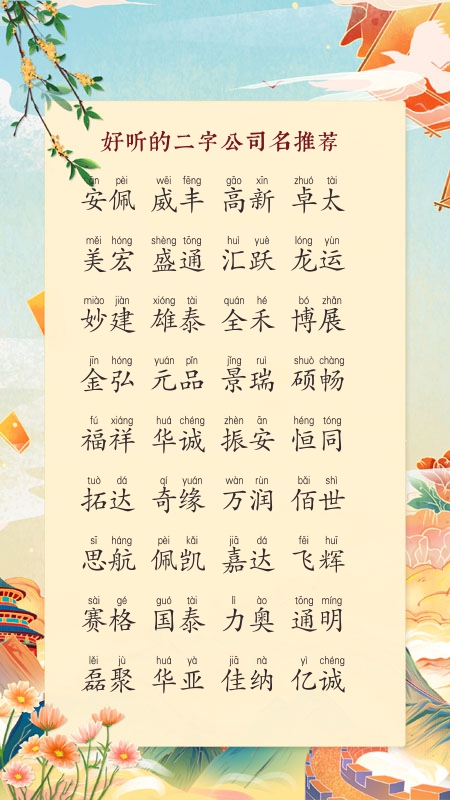 好听的二字公司名推荐
ān pèi wēi fēng gāo xīn zhuó tài
安佩 威丰 高新 卓太
měi hóng shèng tōng huì yuè lóng yùn
美宏 盛通 汇跃 龙运
miào jiàn xióng tài quán hé bó zhǎn
妙建 雄泰 全禾 博展
jīn hóng yuán pǐn jǐng ruì shuò chàng
金弘 元品 景瑞 硕畅
fú xiáng huá chéng zhèn ān héng tóng
福祥 华诚 振安 恒同
tuò dá qí yuán wàn rùn bǎi shì
拓达 奇缘 万润 佰世
sī háng pèi kǎi jiā dá fēi huī
思航 佩凯 嘉达 飞辉
sài gé guó tài lì ào tōng míng
赛格 国泰 力奥 通明
lěi jù huá yà jiā nà yì chéng
磊聚 华亚 佳纳 亿诚